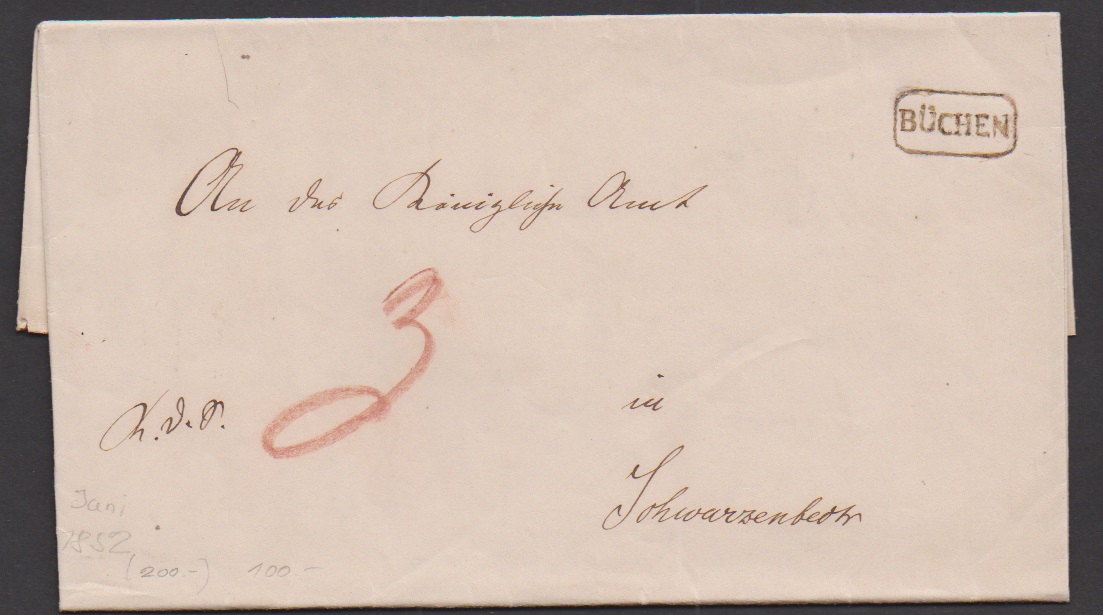 BÜCHEN
An das Königliche Amt
3
K. d. S.
in
Schwarzenbeck
Juni
1852
(200.-) 100.-